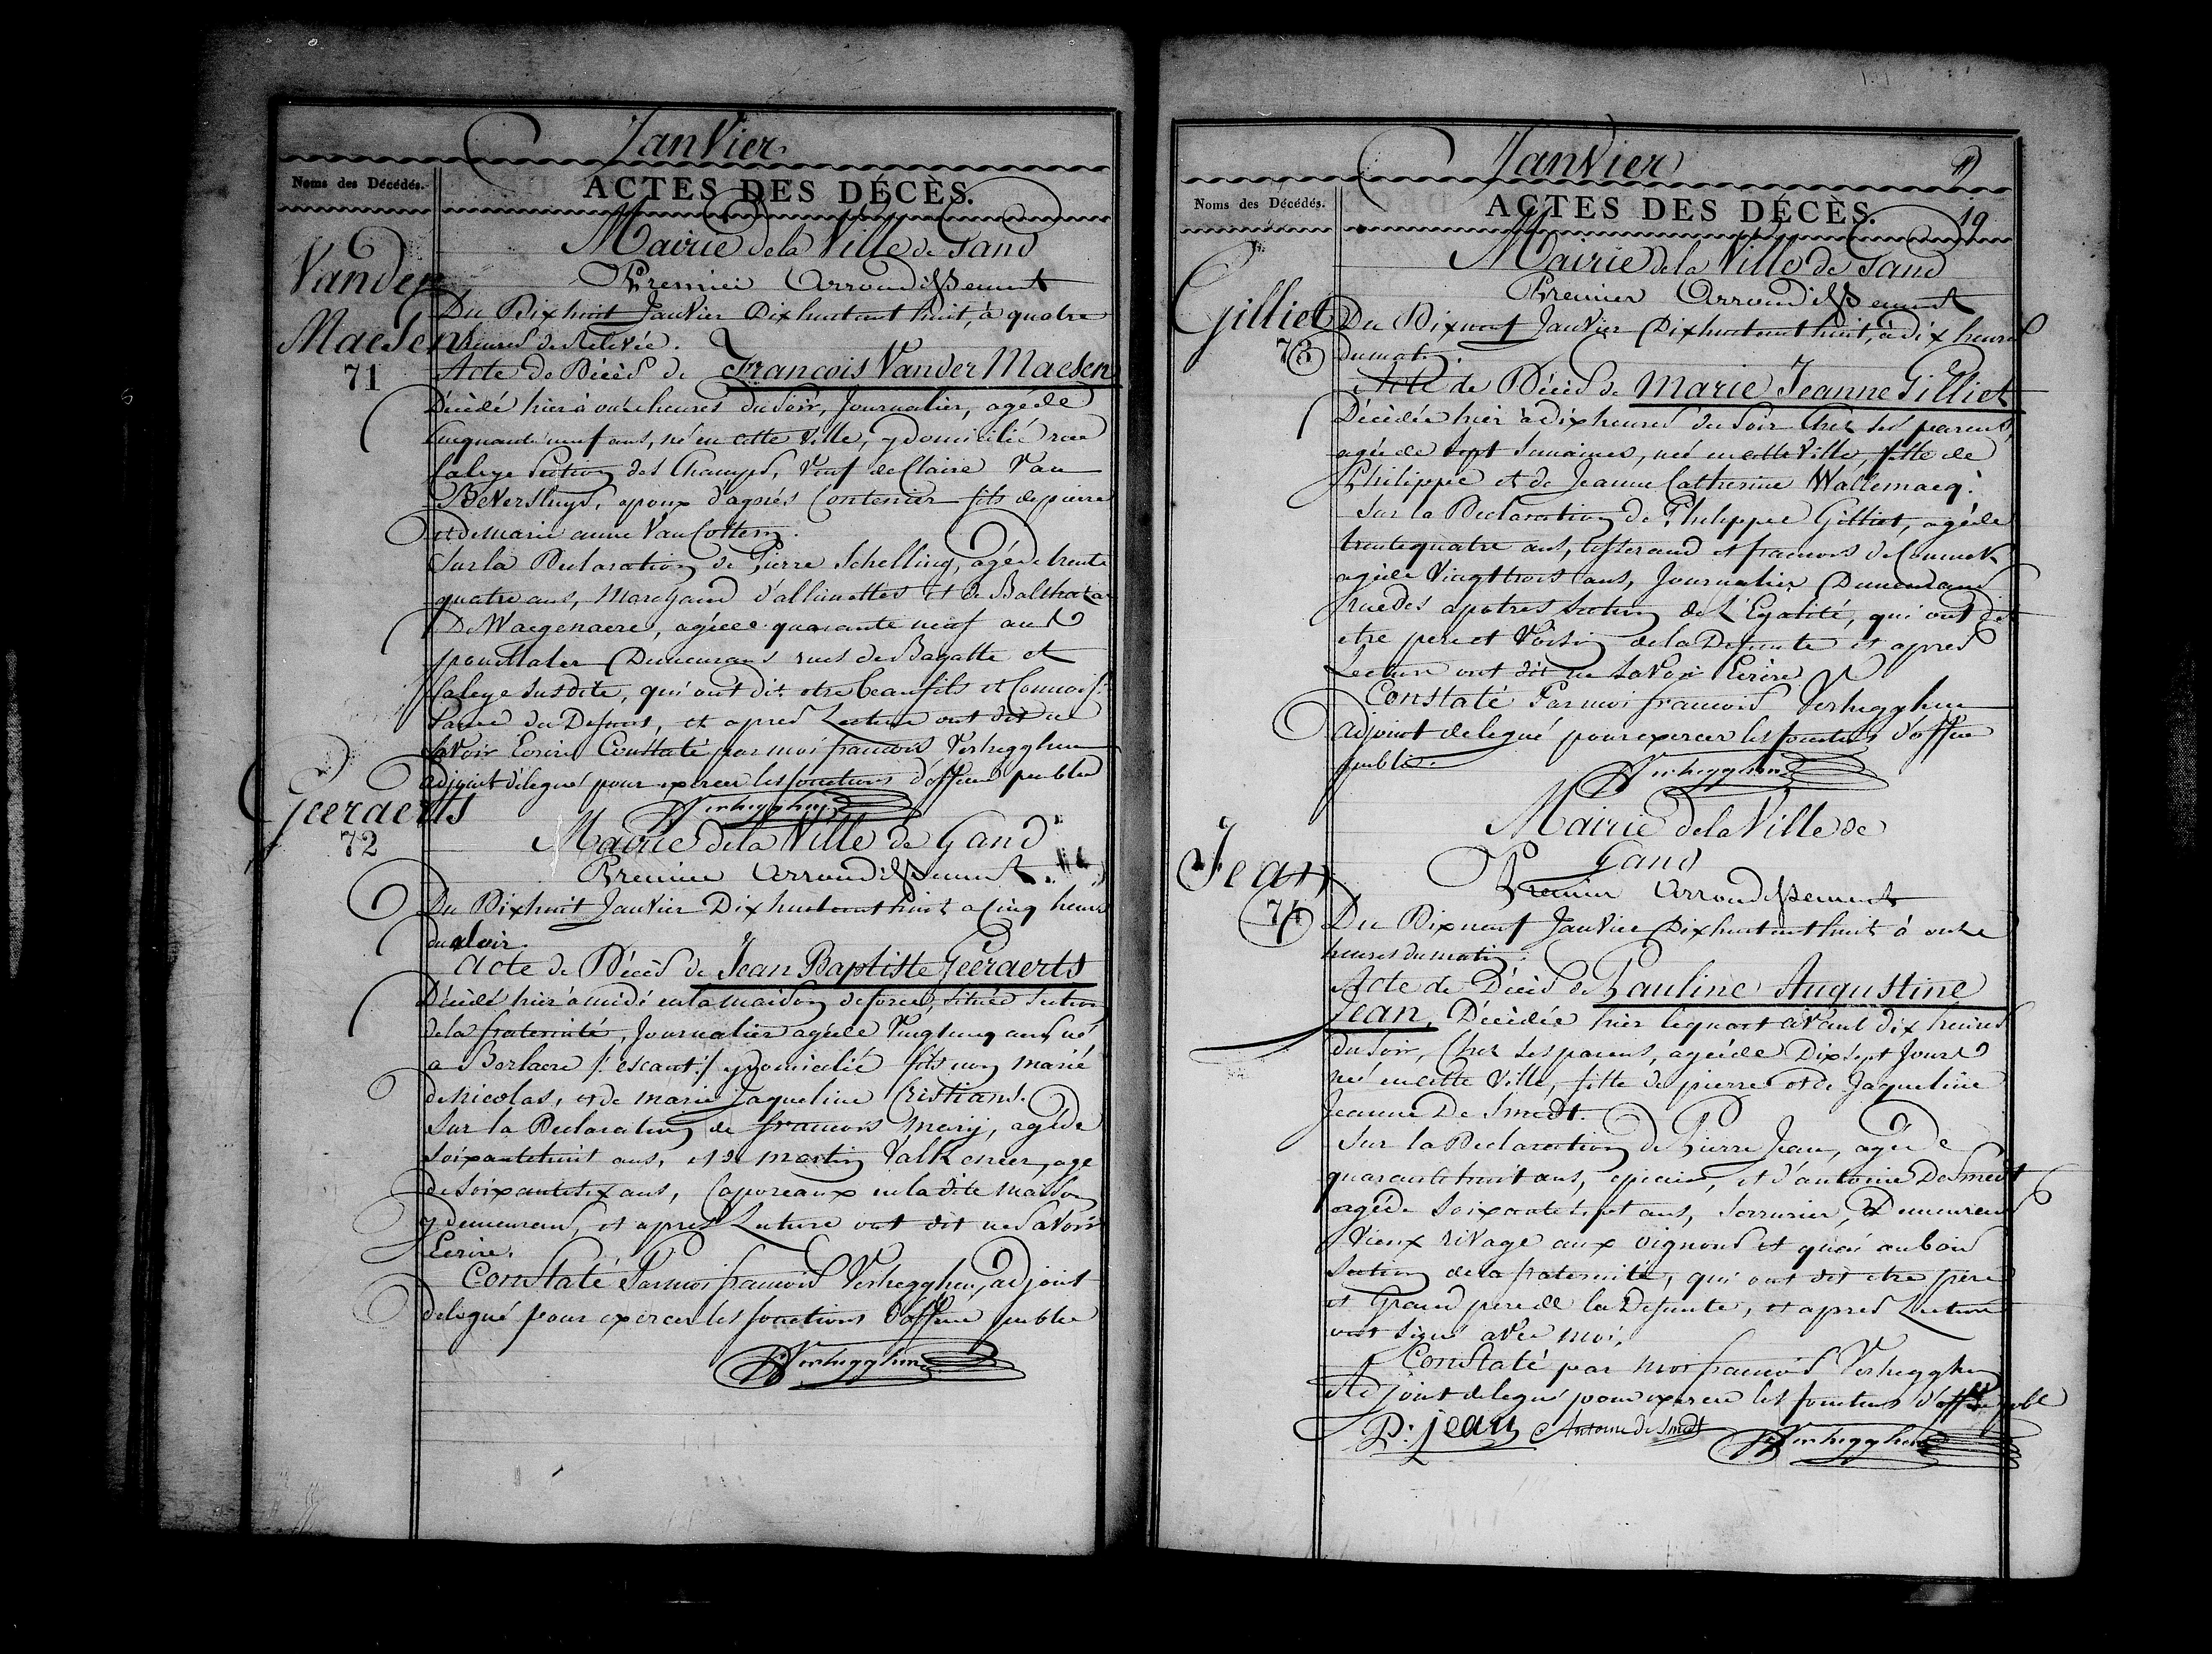 Janvier
Noms des Décédés.
ACTES DES DÉCÈS.
Mairie de la Ville de Gand
Premier Arrondissement
Vander
Maesen
71
Du Dixhuit Janvier Dixhuitcent huit, à quatre
heures de Relevée.
Acte de Décès de Francois Vander Maesen
Décédé hier à onze heures du Soir, Journalier, agé de
Cinquante neuf ans, né en cette Ville, y domicilié rue
Calege Section des Champs, Veuf de Claire Van
Beversluys, epoux d'agnés Contenier fils de pierre
et de marie anne Van Cottem.
Sur la Declaration de Pierre Schelling, agé de trente
quatre ans, Marchand d'allumettes et de Balthazar
De Waegenaere, agé de quarante neuf ans
Demeurans rues de Bagatte et
Calege Susdite, qui ont dit etre beaufils et Connois-
sance du Defunt, et apres Lecture ont dit ne
Savoir Ecrire Constaté par moi francois Verhegghen
adjoint délegué pour exercer les fonctions d'officier public
Verhegghen
Geeraerts
72
Mairie de la Ville de Gand
Premier Arrondissement
Du Dixhuit Janvier Dixhuitcent huit a Cinq heures
du soir.
Acte de Décès de Jean Baptiste Geeraerts
Décédé hier à midi en la maison de force, située Section
de la fraternité, Journalier agé de Vingtcinq ans, né
a Berlaere /: escaut :/ y domicilié fils non marié
de Nicolas, et de marie Jaqueline Cristians.
Sur la Declaration de francois Mary, agé de
Soixantehuit ans, et de martin Valkeneer, agé
de Soixantesix ans, Caporeaux en la dite Maison
y demeurans, et apres Lecture ont dit ne Savoir
Ecrire.
Constaté Par moi francois Verhegghen, adjoint
delegué pour exercer les fonctions d'officier public
Verhegghen
Janvier
Noms des Décédés.
ACTES DES DÉCÈS.
19
Mairie de la Ville de Gand
Premier Arrondissement
Gilliet
73
Du Dixneuf Janvier Dixhuitcent huit, à dix heures
du matin.
Acte de Décès de Marie Jeanne Gilliet
Décédée hier à dix heures du Soir Chez Ses parens,
agée de Sept Semaines, né en cette Ville, fille de
Philippe et de Jeanne Catherine Wallemacq.
Sur la Declaration de Philippe Gilliet, agé de
trentequatre ans, tisserand et francois De Coninck
agé de Vingttrois ans, Journalier Demeurans
rue des apotres Section de L'Egalité, qui ont dit
etre pere et Voisin de la Defunte et apres
Lecture ont dit ne Savoir Ecrire
Constaté Par moi francois Verhegghen
adjoint delegué pour exercer les fonctions d'officier
public.
Verhegghen
Mairie de la Ville de
Gand
Premier Arrondissement
Jean
74
Du Dixneuf Janvier Dixhuitcent huit à onze
heures du matin.
Acte de Décès de Pauline Augustine
Jean, Décédée hier le quart avant dix heures
du Soir, Chez Ses parens, agée de Dixsept Jours
né en cette Ville, fille de pierre et de Jaqueline
Jeanne De Smedt.
Sur la Declaration de Pierre Jean, agé de
quarantehuit ans, epicier, et d'antoine De Smedt
agé de Soixantesept ans, Serrurier, Demeurans
Vieux rivage aux oignons et quai au bois
Section de la fraternité, qui ont dit etre pere
et Grand pere de la Defunte, et apres Lecture
ont signé avec moi.
Constaté par moi francois Verhegghen
Adjoint delegué pour exercer les fonctions d'officier publ
P: jean Antoine De Smedt Verhegghen